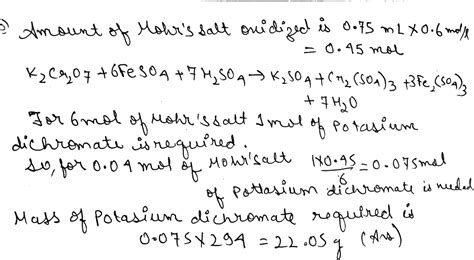 Amount of Mohr's salt oxidized is 0.75 mL X 0.6 mol/L
= 0.45 mol
K2Cr2O7 + 6FeSO4 + 7H2SO4 → K2SO4 + Cr2(SO4)3 + 3Fe2(SO4)3
+ 7H2O
For 6 mol of Mohr's salt 1 mol of Potasium
dichromate is required.
So, for 0.04 mol of Mohr's alt 1X0.45/6 = 0.075 mol
of Pottasium dichromate is needed
Mass of Potasium dichromate required is
0.075 X 294 = 22.05 g (Ans)